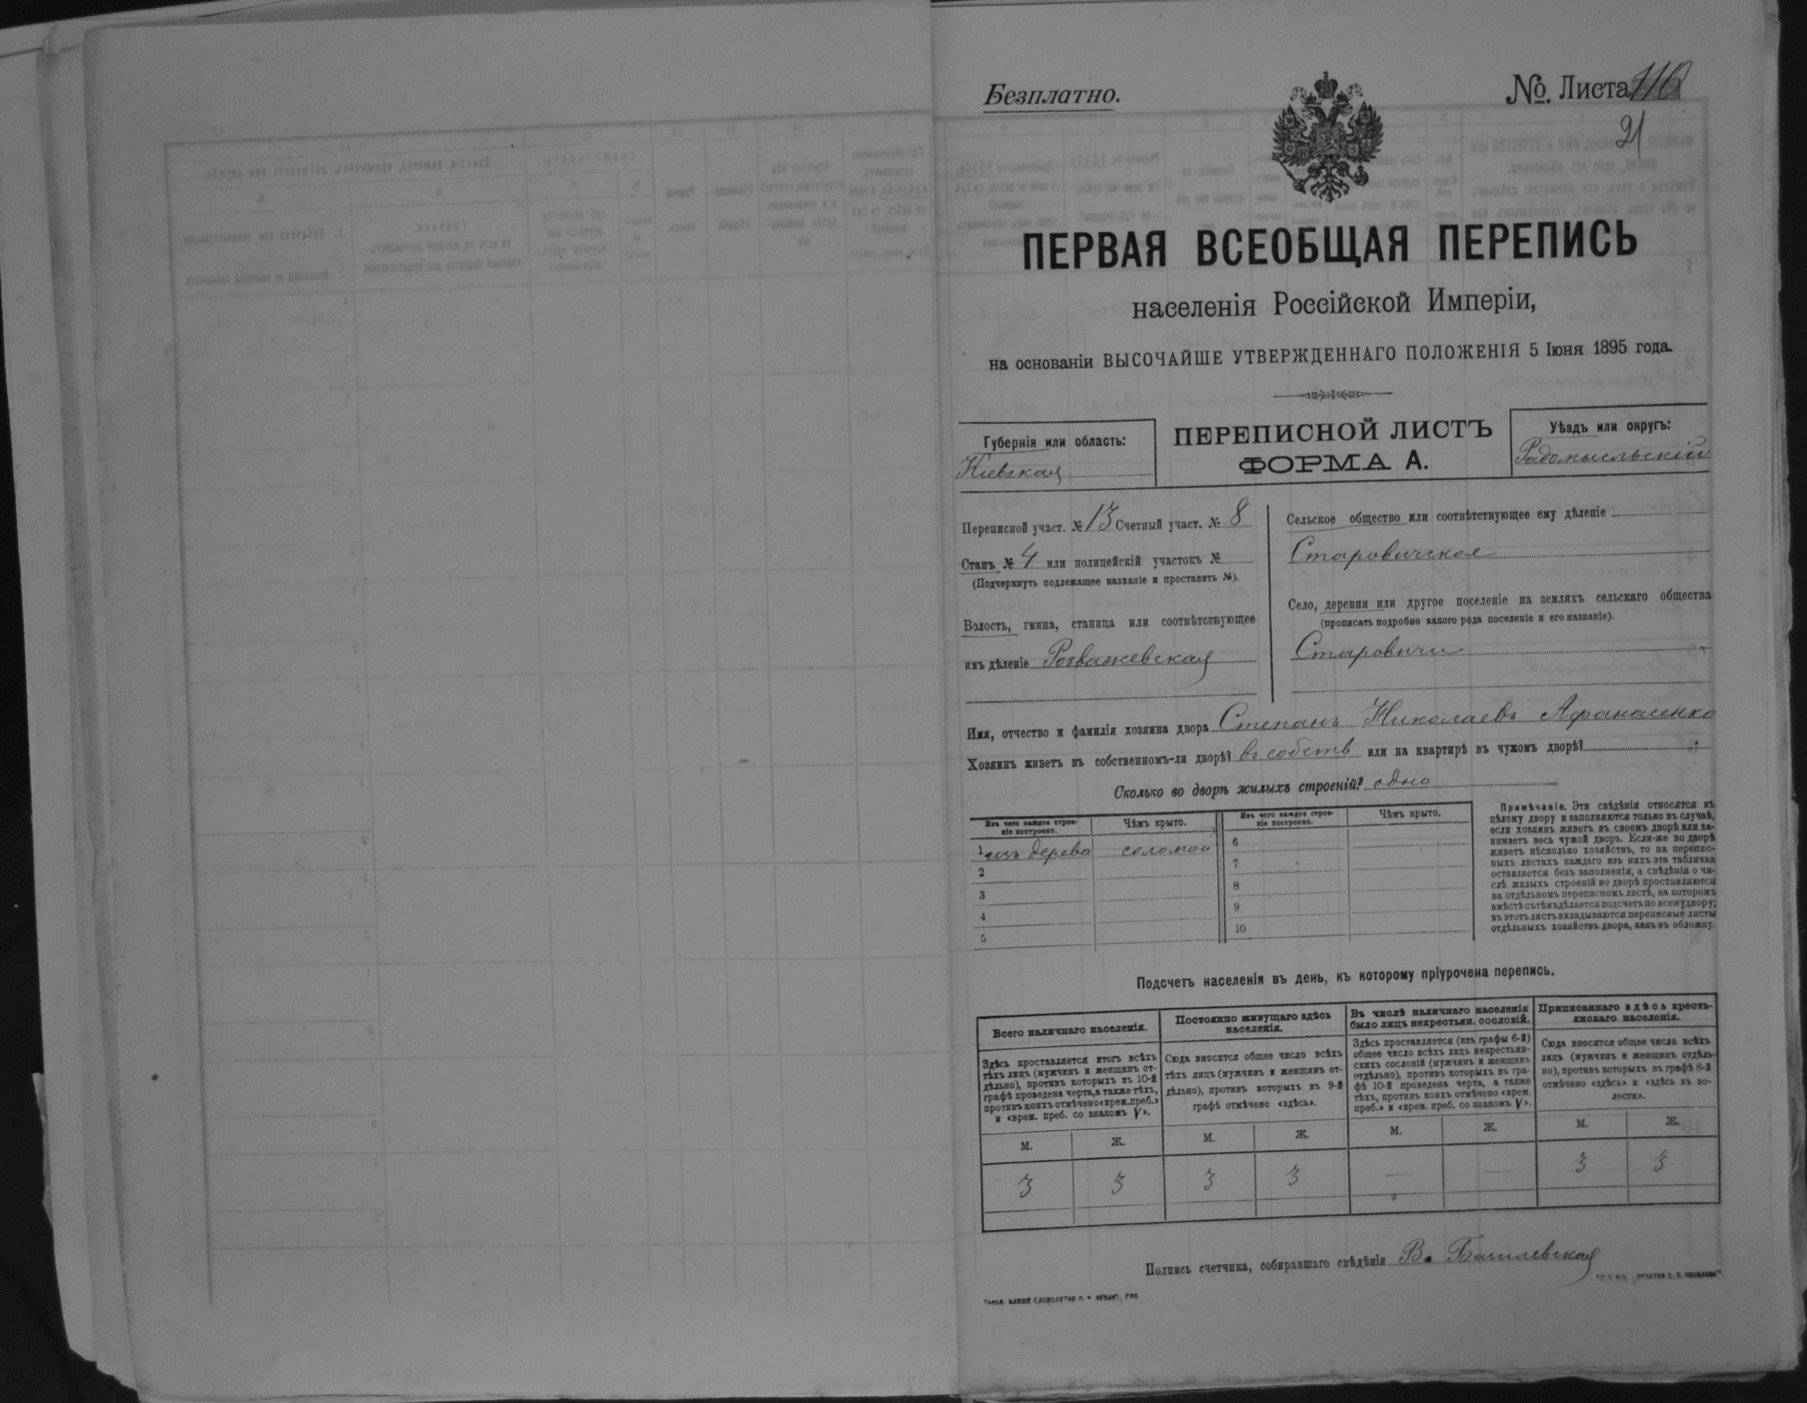 Безплатно.
№. Листа 116
21
ПЕРВАЯ ВСЕОБЩАЯ ПЕРЕПИСЬ
населенія Россійской Имперіи,
на основаніи ВЫСОЧАЙШЕ УТВЕРЖДЕННАГО ПОЛОЖЕНІЯ 5 Іюня 1895 года.
Губернія или область:
Кіевская
ПЕРЕПИСНОЙ ЛИСТЪ
ФОРМА А.
Уѣздъ или округъ:
Радомысльскій
Переписной участ. № 13 Счетный участ. № 8
Станъ № 4 или полицейскій участокъ №
(Подчеркнуть подлежащее названіе и проставить №).
Волость, гмина, станица или соотвѣтствующее
имъ дѣленіе Розважевская
Сельское общество или соотвѣтствующее ему дѣленіе
Старовичское
Село, деревня или другое поселеніе на земляхъ сельскаго общества
(прописать подробно какого рода поселеніе и его названіе).
Старовичи
Имя, отчество и фамилія хозяина двора Степанъ Николаевъ Афанасенко
Хозяинъ живетъ въ собственномъ-ли дворѣ? въ собств или на квартирѣ въ чужомъ дворѣ?
Сколько во дворѣ жилыхъ строеній? одно
Изъ чего каждое строе-
ніе построено.
Чѣмъ крыто.
Изъ чего каждое строе-
ніе построено.
Чѣмъ крыто.
1 изъ дерева соломой
2
3
4
5
6
7
8
9
10
Примѣчаніе. Эти свѣдѣнія относятся къ
цѣлому двору и заполняются только въ случаѣ,
если хозяинъ живетъ въ своемъ дворѣ или за-
нимаетъ весь чужой дворъ. Если-же во дворѣ
живетъ нѣсколько хозяйствъ, то на перепис-
ныхъ листахъ каждаго изъ нихъ эта табличка
оставляется безъ заполненія, а свѣдѣнія о чи-
слѣ жилыхъ строеній во дворѣ проставляются
на отдѣльномъ переписномъ листѣ, на которомъ
вмѣстѣ съ тѣмъ дѣлается подсчетъ по всему двору;
въ этотъ листъ вкладываются переписные листы
отдѣльныхъ хозяйствъ двора, какъ въ обложку.
Подсчетъ населенія въ день, къ которому пріурочена перепись.
Всего наличнаго населенія.
Здѣсь проставляется итогъ всѣхъ
тѣхъ лицъ (мужчинъ и женщинъ от-
дѣльно), противъ которыхъ въ 10-й
графѣ проведена черта, а также тѣхъ,
противъ коихъ отмѣчено «врем. преб.»
и «врем. преб. со знакомъ V».
Постоянно живущаго здѣсь
населенія.
Сюда вносится общее число всѣхъ
тѣхъ лицъ (мужчинъ и женщинъ от-
дѣльно), противъ которыхъ въ 9-й
графѣ отмѣчено «здѣсь».
Въ числѣ наличнаго населенія
было лицъ некрестьян. сословій.
Здѣсь проставляется (изъ графы 6-й)
общее число всѣхъ лицъ некрестьян-
скихъ сословій (мужчинъ и женщинъ
отдѣльно), противъ которыхъ въ гра-
фѣ 10-й проведена черта, а также
тѣхъ, противъ коихъ отмѣчено «врем.
преб.» и «врем. преб. со знакомъ V».
Приписаннаго здѣсь кресть-
янскаго населенія.
Сюда вносится общее число всѣхъ
лицъ (мужчинъ и женщинъ отдѣль-
но), противъ которыхъ въ графѣ 8-й
отмѣчено «здѣсь» и «здѣсь къ во-
лости».
М. Ж. М. Ж. М. Ж. М. Ж.
3 3 3 3 — — 3 3
Подпись счетчика, собиравшаго свѣдѣнія В. Базилевская